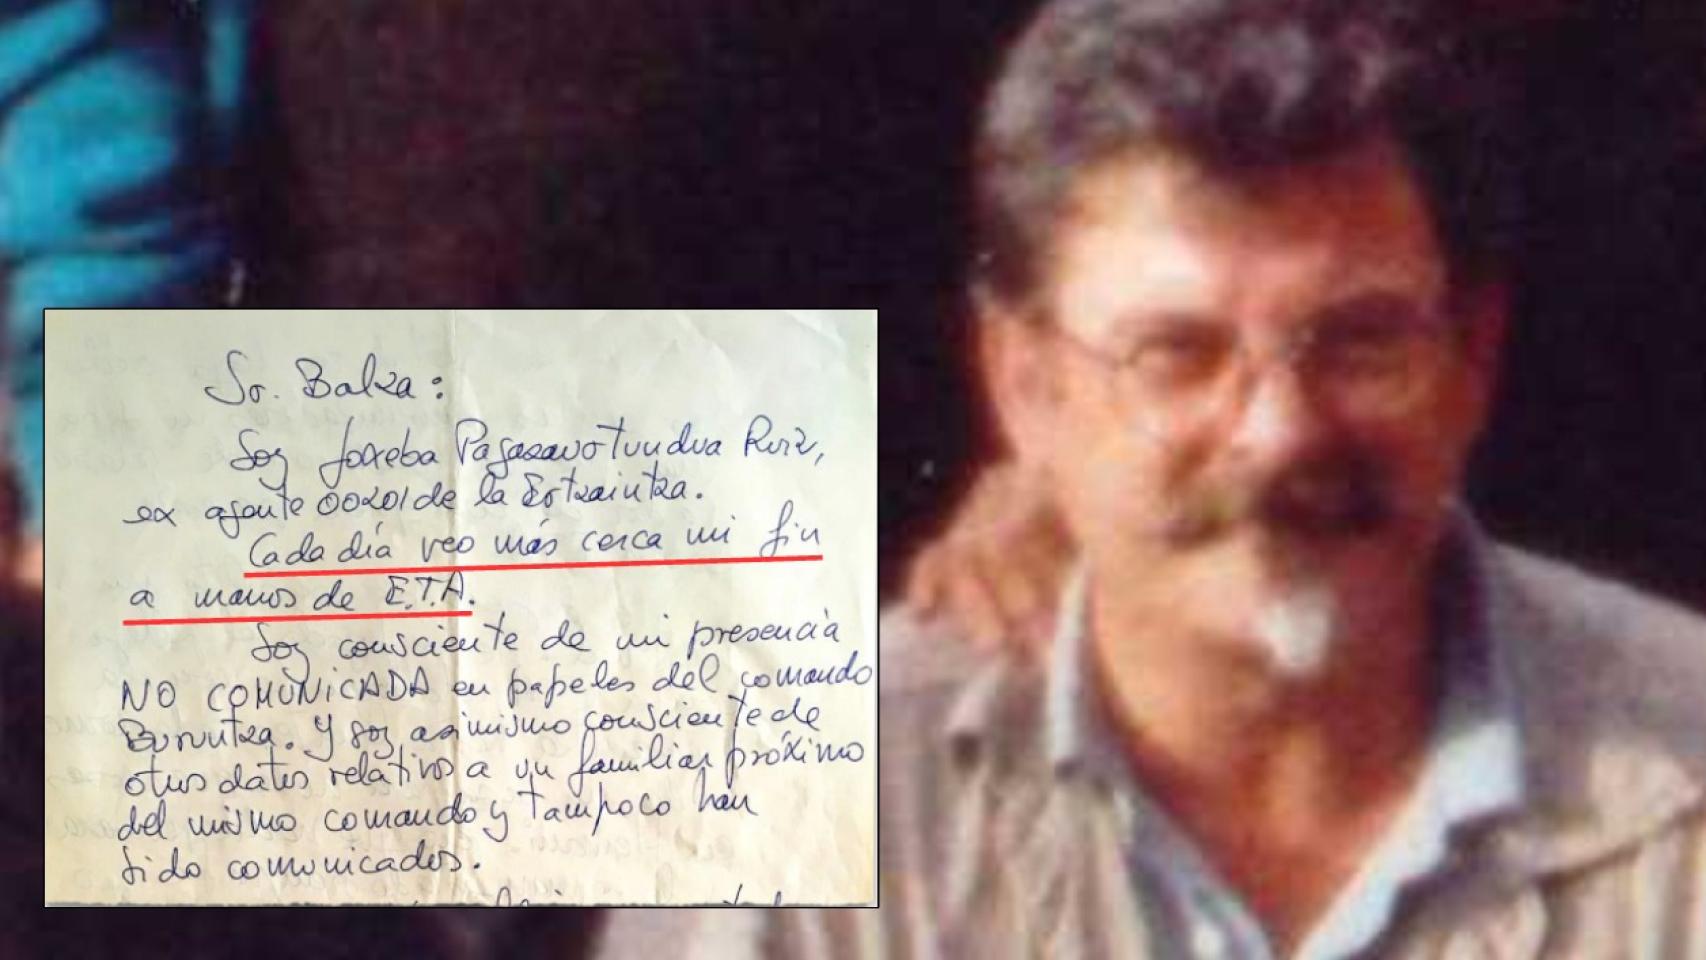 Sr. Balza:
Soy Joxeba Pagazaurtundua Ruiz,
ex agente 00201 de la Ertzaintza.
Cada día veo más cerca mi fin
a manos de E.T.A.
Soy consciente de mi presencia
NO COMUNICADA en papeles del comando
Buruntza. Y soy asimismo consciente de
otros datos relativos a un familiar próximo
del mismo comando y tampoco han
sido comunicados.